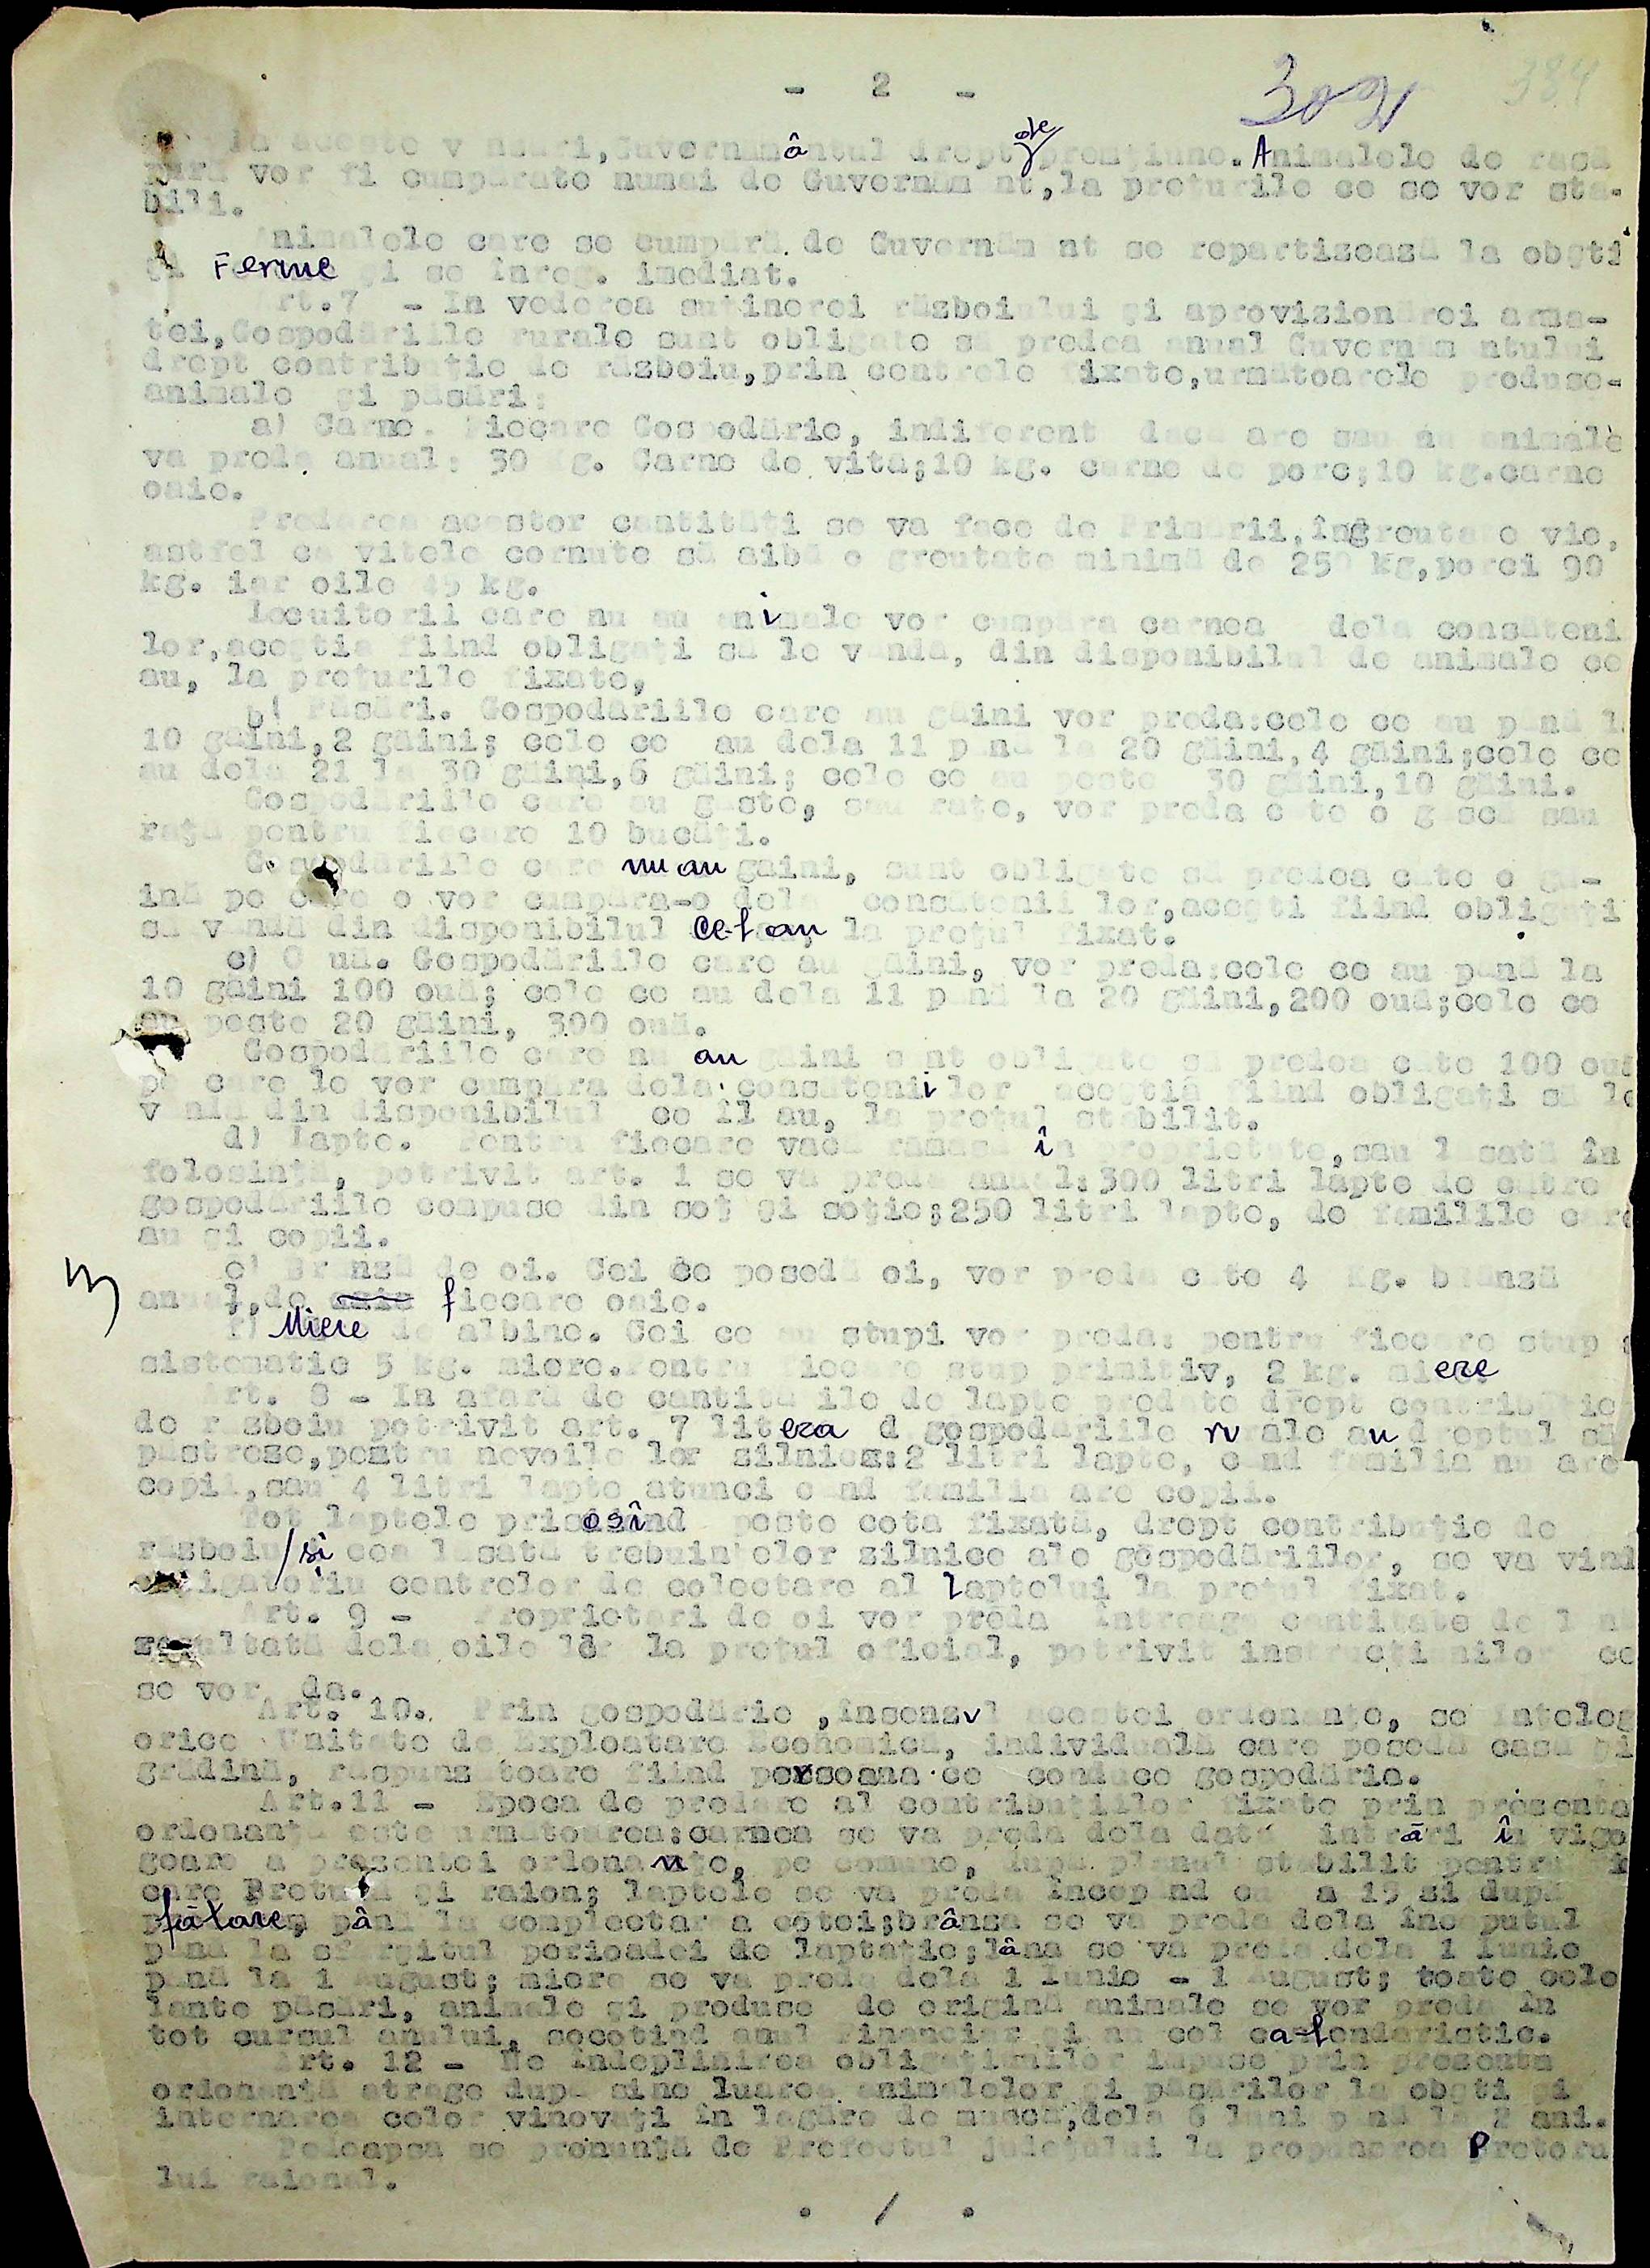 - 2 -
302 384
la aceste v nzări, Guvernământul drept de preemţiune. Animalele de rasă
pură vor fi cumparate numai de Guvernăm nt, la preţurile ce se vor sta-
bili.
Animalele care se cumpără de Guvernăm nt se repartisează la obşti
Ferme şi se înreg. imediat.
Art.7 - In vederea suţinerei războiului şi aprovizionărei arma-
tei, Gospodăriile rurale sunt obligate să predea anual Guvernăm ntului
drept contribuţie de războiu, prin centrele fixate, următoarele produse-
animale şi păsări:
a) Carne. Fiecare Gospodărie, indiferent daca are sau nu animale
va preda anual: 30 kg. Carne de vită; 10 kg. carne de porc; 10 kg. carne
oaie.
Predarea acestor cantităţi se va face de Primării, în greutate vie,
astfel ca vitele cornute să aibă o greutate minimă de 250 kg, porci 90
kg. iar oile 45 kg.
Locuitorii care nu au animale vor cumpăra carnea dela consăteni
lor, aceştia fiind obligaţi să le v ndă, din disponibilul de animale ce
au, la preţurile fixate,
b) Păsări. Gospodăriile care au găini vor preda: cele ce au p nă l
10 găini, 2 găini; cele ce au dela 11 p nă la 20 găini, 4 găini; cele ce
au dela 21 la 30 găini, 6 găini; cele ce au peste 30 găini, 10 găini.
Gospodăriile care au gaste, sau raţe, vor preda c te o g scă sau
raţă pentru fiecare 10 bucăţi.
Gospodăriile care nu au găini, sunt obligate să predea cate o gă-
ină pe care o vor cumpara-o dela consătenii lor, aceşti fiind obligaţi
să v ndă din disponibilul ce-l au la preţul fixat.
c) O uă. Gospodăriile care au găini, vor preda: cele ce au până la
10 găini 100 ouă; cele ce au dela 11 p nă la 20 găini, 200 ouă; cele ce
au peste 20 găini, 300 ouă.
Gospodăriile care nu au găini sunt obligate să predea c te 100 ouă
pe care le vor cumpăra dela consătenii lor aceştia fiind obligaţi să le
v ndă din disponibilul ce îl au, la preţul stabilit.
d) Lapte. Pentru fiecare vacă rămasă în proprietate, sau l sată în
folosinţă, potrivit art. 1 se va preda anual: 300 litri lapte de către
gospodăriile compuse din soţ şi soţie; 250 litri lapte, de familile care
au şi copii.
e) Br nză de oi. Cei ce posedă oi, vor preda c te 4 kg. brânză
anual, de fiecare oaie.
f) Miere de albine. Cei ce au stupi vor preda: pentru fiecare stup s
sistematic 5 kg. miere. Pentru fiecare stup primitiv, 2 kg. miere
Art. 8 - In afară de cantită ile de lapte predate drept contribuţie
de r zboiu potrivit art. 7 litera d gospodăriile rurale au dreptul să
păstreze, pentru nevoile lor zilnice: 2 litri lapte, c nd familia nu are
copii, sau 4 litri lapte atunci c nd familia are copii.
Tot laptele prisosînd peste cota fixată, drept contribuţie de
războiu / şi cea lasată trebuinţelor zilnice ale gospodăriilor, se va vind
obligatoriu centrelor de colectare al laptelui la preţul fixat.
Art. 9 - Proprietari de oi vor preda întreaga cantitate de l nă
rezultată dela oile lor la preţul oficial, potrivit instrucţiunilor ce
se vor da.
Art. 10. Prin gospodărie, în sensul acestei ordonanţe, se înţeleg
orice Unitate de Exploatare Economică, individuală care posedă casă şi
grădină, raspunz toare fiind persoana ce conduce gospodăria.
Art.11 - Epoca de predare al contribuţiilor fixate prin prezenta
ordonanţă este următoarea: carnea se va preda dela data intrări în vigo
goare a prezentei ordonanţe, pe comune, după planul stabilit pentru fi
care Pretură şi raion; laptele se va preda începând cu a 15 zi după
fătare, până la complectarea cotei; brânza se va preda dela începutul
p nă la sfârşitul perioadei de laptaţie; lâna se va preda dela 1 Iunie
p nă la 1 August; miere se va preda dela 1 Iunie - 1 August; toate cele
lante păsări, animale şi produse de origină animale se vor preda în
tot cursul anului, socotind anul financiar şi nu cel calendaristic.
Art. 12 - Ne îndeplinirea obligaţiunilor impuse prin prezenta
ordonanţă atrage după sine luarea animalelor şi păsărilor la obşti şi
internarea celor vinovaţi în lagăre de muncă, dela 6 luni p nă la 2 ani.
Pedeapsa se pronunţă de Prefectul judeţului la propunerea Pretoru
lui raional.
. / .